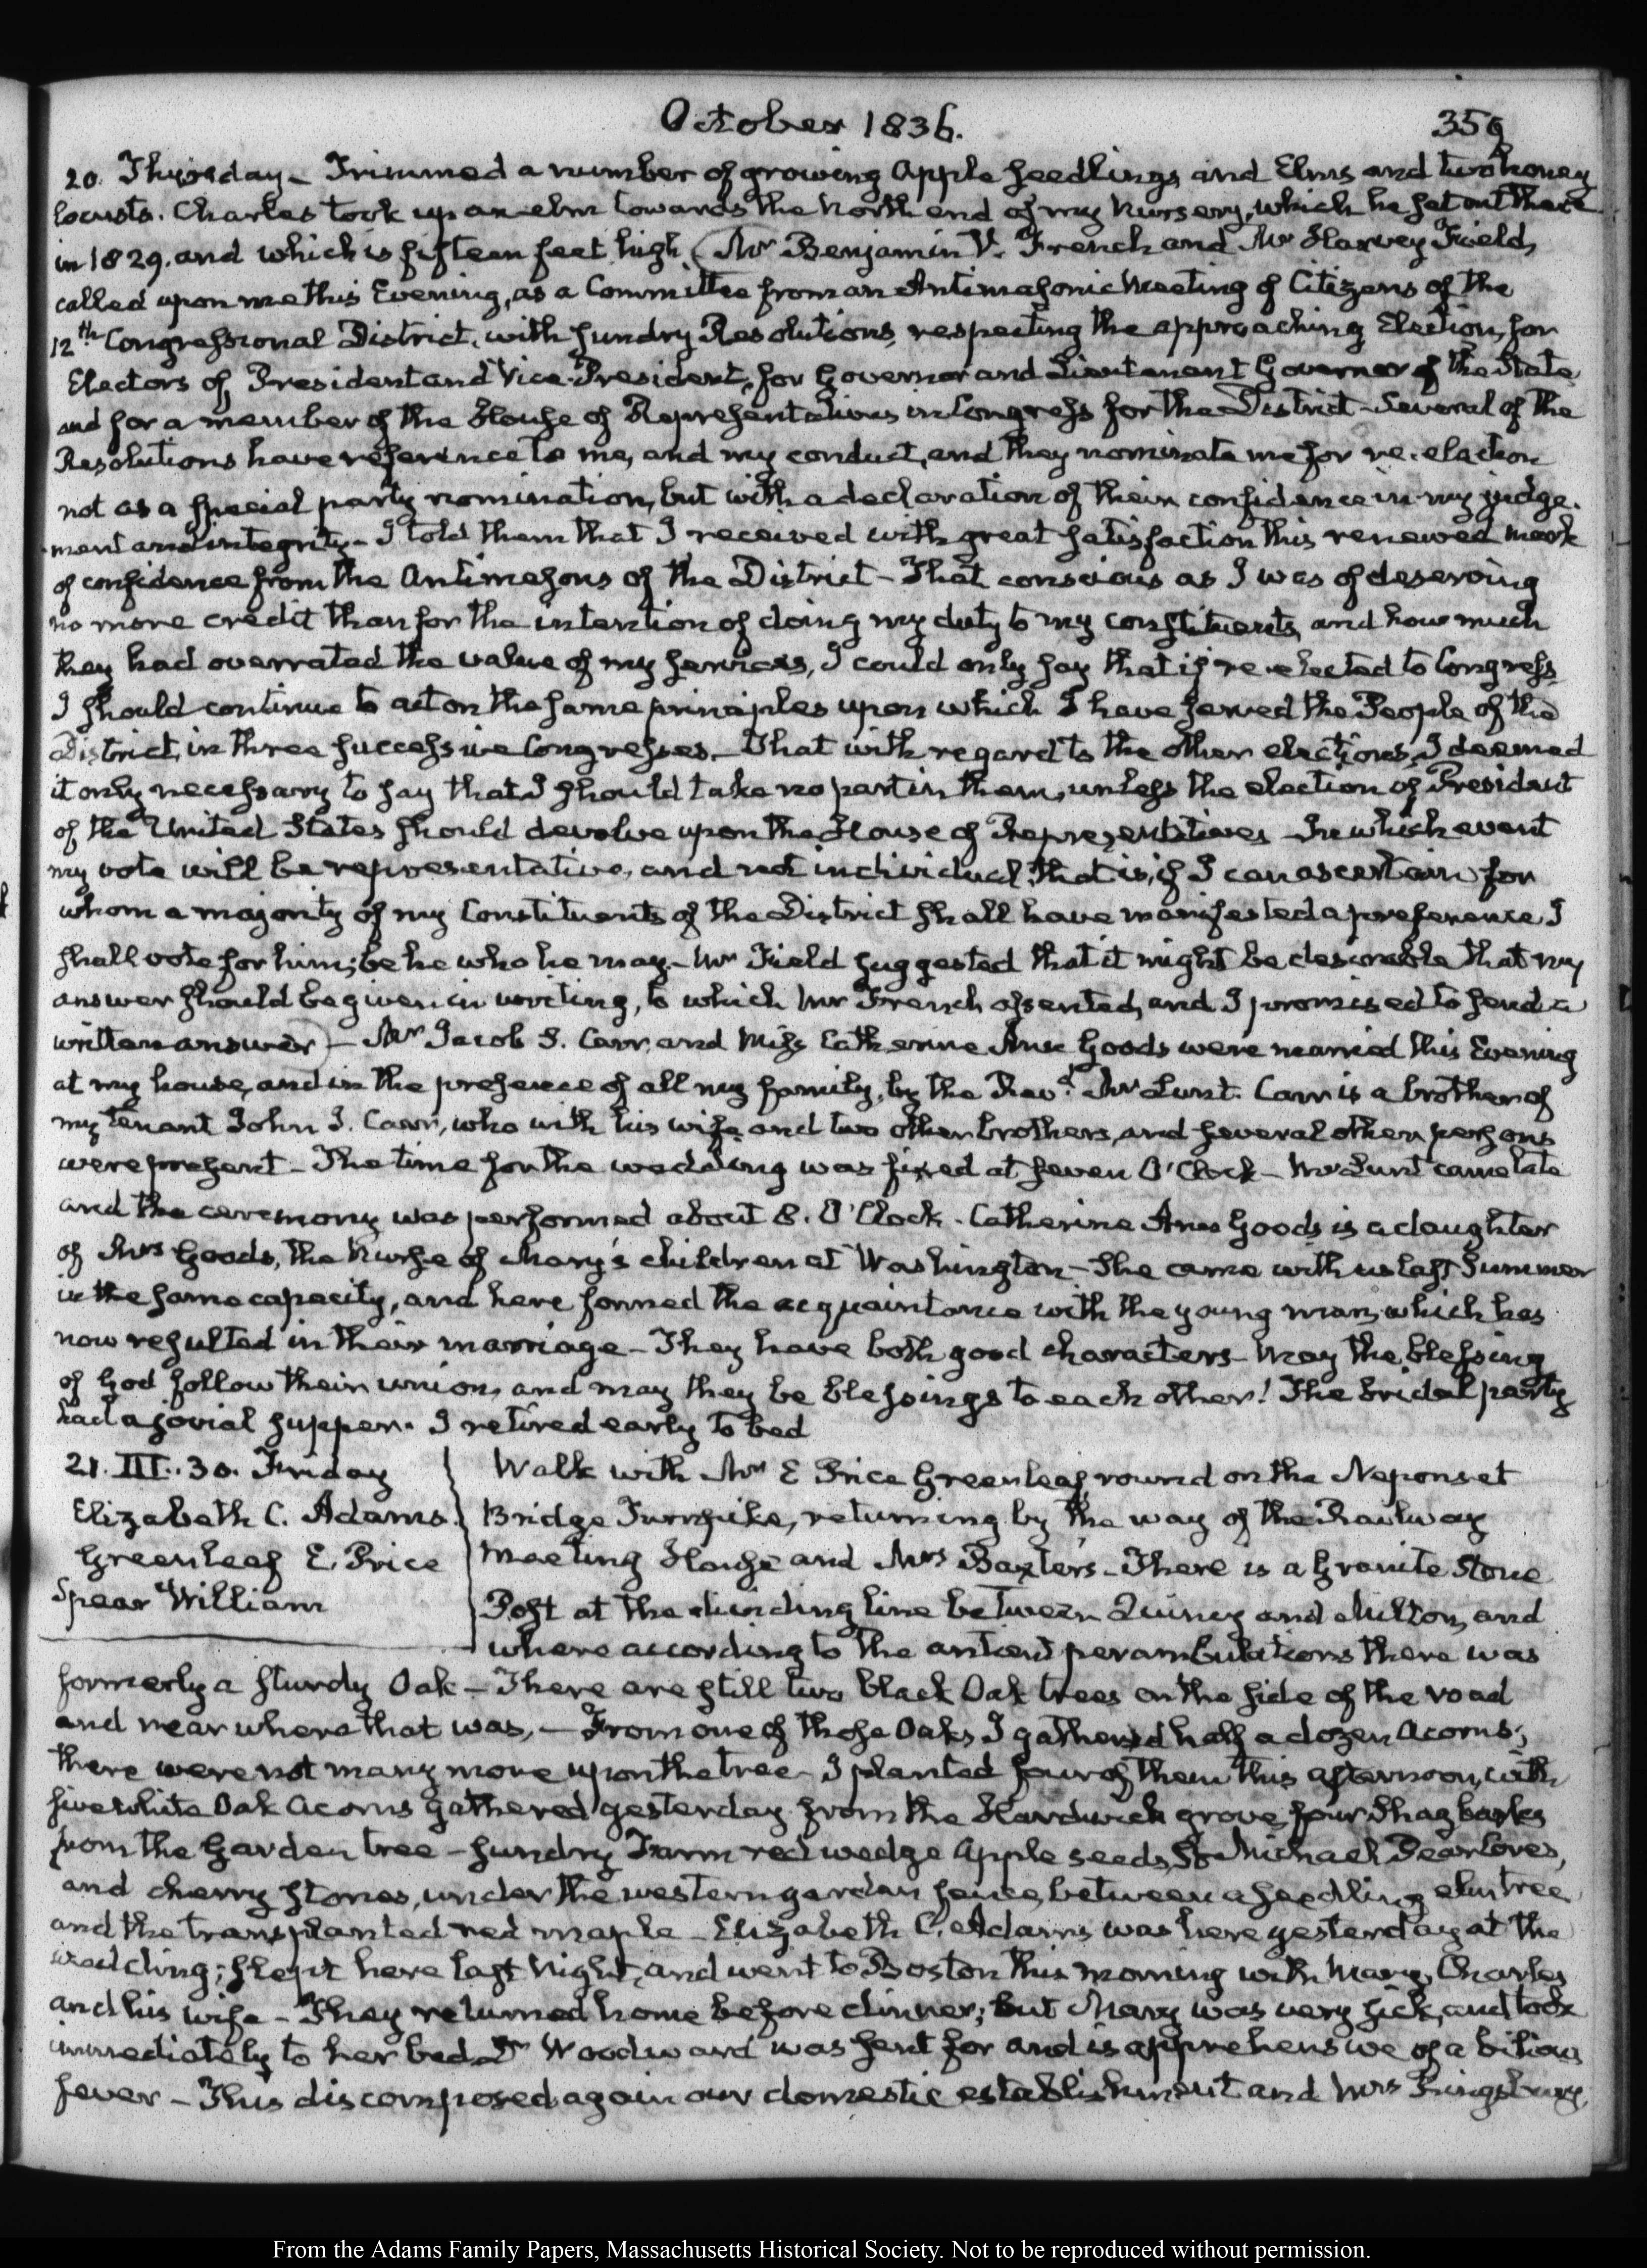 October 1836.
359
20. Thursday – Trimmed a number of growing Apple seedlings and Elms and two honey
locusts. Charles took up an elm towards the North end of my Nursery, which he set out there
in 1829. and which is fifteen feet high (Mr Benjamin V. French and Mr Harvey Field,
called upon me this Evening, as a Committee from an Antimasonic Meeting of Citizens of the
12th Congressional District, with sundry Resolutions, respecting the approaching Election, for
Electors of President and Vice-President, for Governor and Lieutenant Governor of the State
and for a member of the House of Representatives in Congress for the District – Several of the
Resolutions have reference to me, and my conduct, and they nominate me for re-election
not as a special party nomination, but with a declaration of their confidence in my judge-
ment and integrity – I told them that I received with great satisfaction this renewed mark
of confidence from the Antimasons of the District – That conscious as I was of deserving
no more credit than for the intention of doing my duty to my constituents, and how much
they had overrated the value of my services, I could only say that if re-elected to Congress
I should continue to act on the same principles upon which I have served the People of the
District, in three successive Congresses – That with regard to the other elections, I deemed
it only necessary to say that I should take no part in them, unless the election of President
of the United States should devolve upon the House of Representatives – In which event
my vote will be representative, and not individual; that is, if I can ascertain for
whom a majority of my Constituents of the District shall have manifested a preference I
shall vote for him; be he who he may – Mr Field suggested that it might be desirable that my
answer should be given in writing, to which Mr French assented, and I promised to send a
written answer) – Mr Jacob S. Carr, and Miss Catherine Ann Goods were married this Evening
at my house, and in the presence of all my family, by the Revd. Mr Lunt. Carr is a brother of
my tenant John J. Carr, who with his wife and two other brothers, and several other persons
were present – The time for the wedding was fixed at seven O'Clock – Mr Lunt came late
and the ceremony was performed about 8. O'Clock. Catherine Ann Goods is a daughter
of Mrs Goods, the Nurse of Mary's children at Washington – She came with us last Summer
in the same capacity, and here formed the acquaintance with the young man, which has
now resulted in their marriage – They have both good characters – May the blessing
of God follow their union, and may they be blessings to each other! The bridal party
had a jovial supper. I retired early to bed
21. III:30. Friday
Elizabeth C. Adams.
Greenleaf E. Price
Spear William
Walk with Mr E Price Greenleaf, round on the Neponset
Bridge Turnpike, returning by the way of the Railway
Meeting House and Mrs Baxter's – There is a Granite Stone
Post at the dividing line between Quincy and Milton, and
where according to the antient perambulations there was
formerly a sturdy Oak – There are still two black Oak trees on the side of the road
and near where that was, – From one of those Oaks I gathered half a dozen Acorns;
there were not many more upon the tree – I planted four of them this afternoon, with
five white Oak Acorns gathered yesterday from the Hardwick grove, four Shagbarks
from the Garden tree – sundry Farm red wedge Apple seeds, St. Michael Pear cores,
and cherry stones, under the western garden fence, between a seedling elm tree
and the transplanted red maple – Elizabeth C. Adams was here yesterday at the
wedding; slept here last Night, and went to Boston this morning with Mary, Charles
and his wife – They returned home before dinner; but Mary was very sick, and took
immediately to her bed. Dr Woodward was sent for and is apprehensive of a bilious
fever – This discomposed again our domestic establishment and Mrs Kingsbury,
From the Adams Family Papers, Massachusetts Historical Society. Not to be reproduced without permission.